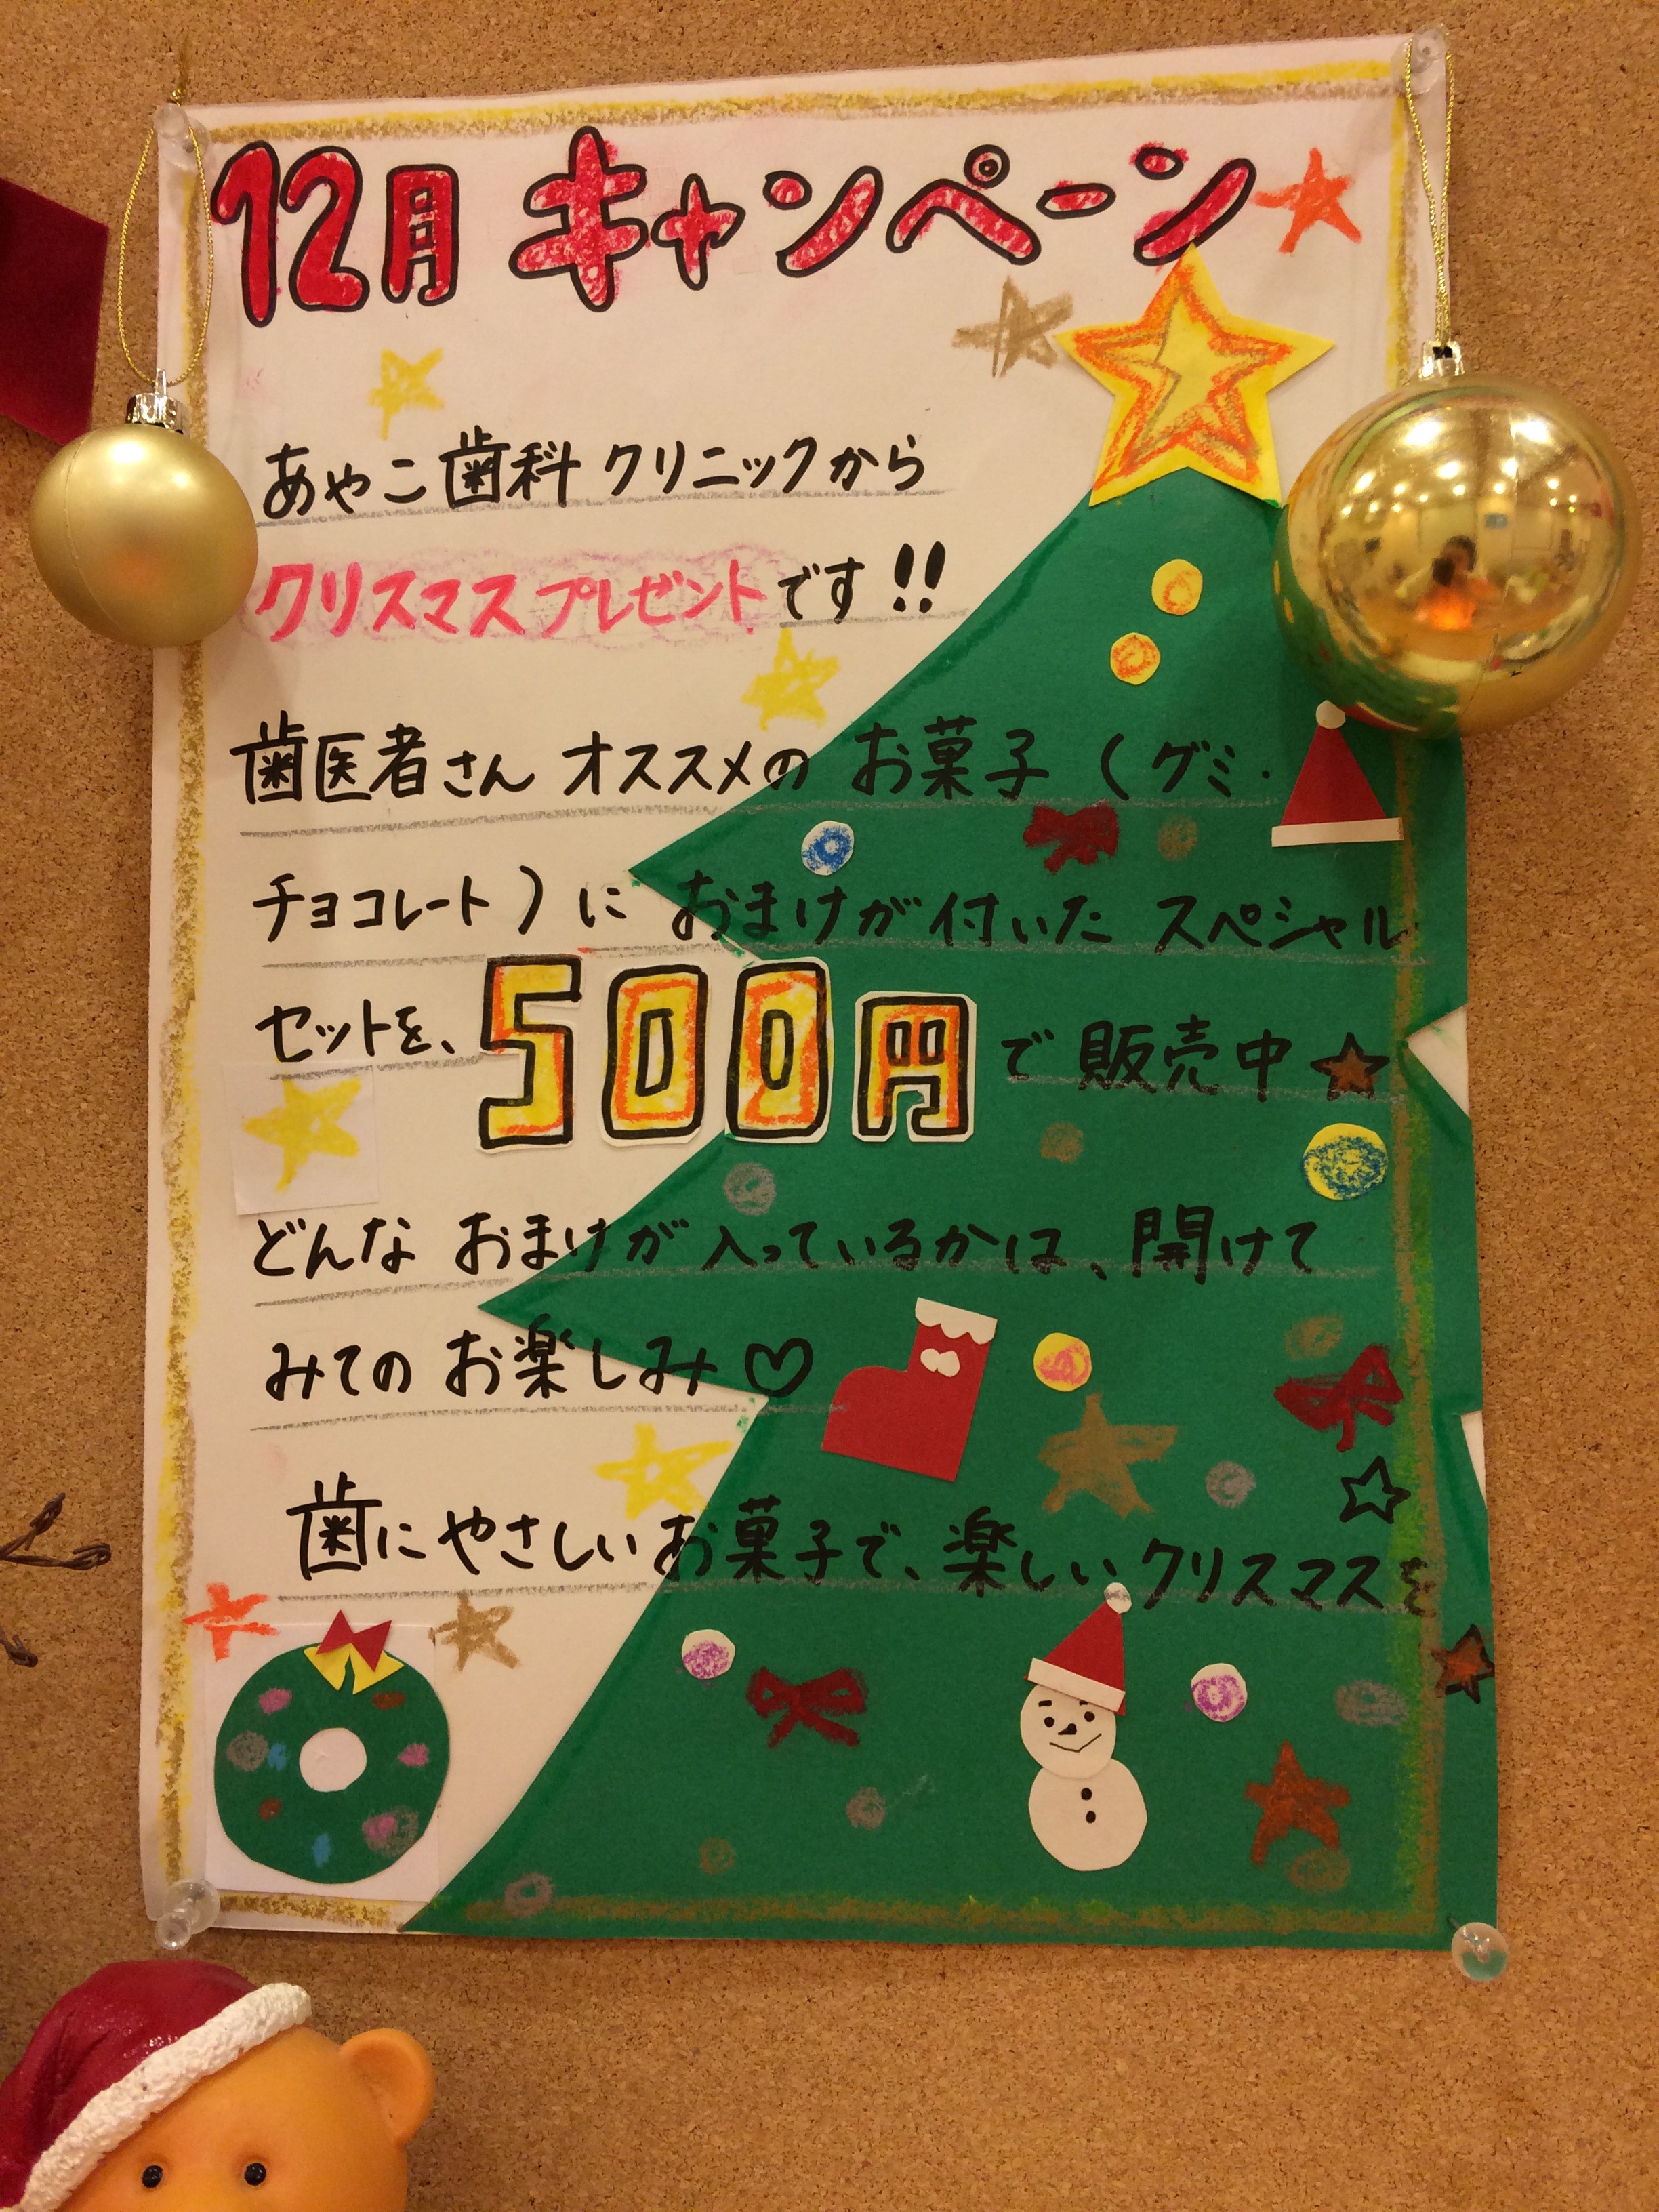 12月キャンペーン★
あやこ歯科クリニックから
クリスマスプレゼントです!!
歯医者さんオススメのお菓子(グミ・
チョコレート)におまけが付いたスペシャル
セットを、500円で販売中☆
どんなおまけが入っているかは、開けて
みてのお楽しみ♡
歯にやさしいお菓子で、楽しいクリスマスを